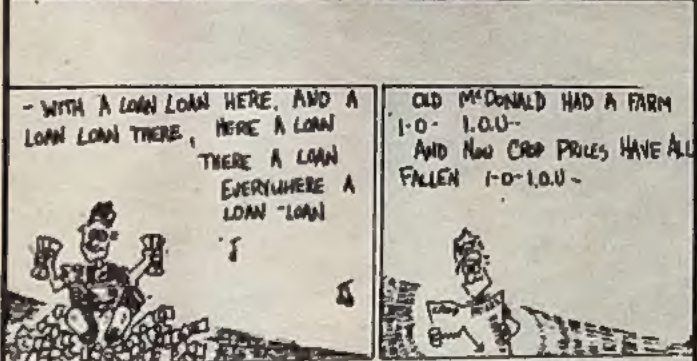 - WITH A LOAN LOAN HERE, AND A
LOAN LOAN THERE, HERE A LOAN
THERE A LOAN
EVERYWHERE A
LOAN -LOAN
OLD McDONALD HAD A FARM
I-O- I.O.U--
AND NOW CROP PRICES HAVE ALL
FALLEN I-O-I.O.U -